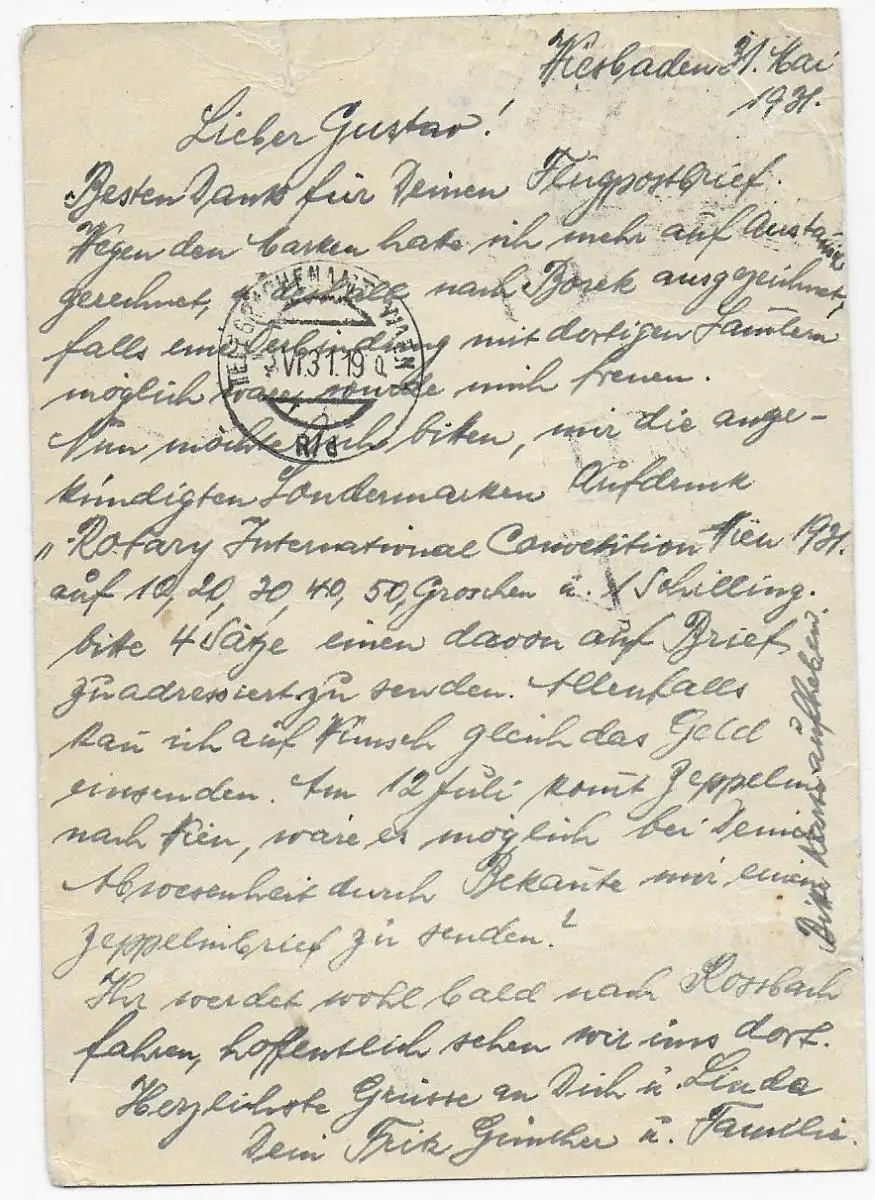 Wiesbaden 31. Mai
1931.
Lieber Gustav!
Besten Dank für Deinen Flugpostbrief.
Wegen den Marken hatte ich mehr auf Austausch
gerechnet, nach Borek ausgezeichnet,
falls eine Verbindung mit dortigen
möglich wäre, würde mich freuen.
Nun möchte ich bitten, mir die ange-
kündigten Sondermarken Aufdruck
„Rotary International Convetition Wien 1931.
auf 10, 20, 30, 40, 50, Groschen u. 1 Schilling.
bitte 4 Sätze einen davon auf Brief
zuadressiert zu senden. Allenfalls
kan ich auf Wunsch gleich das Geld
einsenden. Am 12 Juli komt Zeppelin
nach Wien, wäre es möglich bei Deiner
Abwesenheit durch Bekante mir einen
Zeppelinbrief zu senden?
Ihr werdet wohl bald nach Rossbach
fahren, hoffentlich sehen wir uns dort.
Herzlichste Grüsse an Dich u. Linda
Dein Fritz Günther u. Familie.
Bitte Karte aufheben.
VI.31.19
R/d